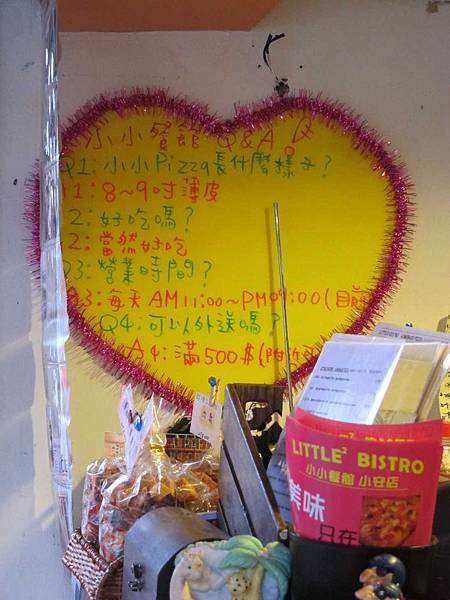 小小餐館 Q&A
Q1:小小Pizza長什麼樣子?
1:8~9吋薄皮
2:好吃嗎?
2:當然好吃
Q3:營業時間?
A3:每天AM11:00~PM09:00(目前
Q4:可以外送嗎?
A4:滿500$(附近
LITTLE² BISTRO
小小餐館 小安店
美味
只在